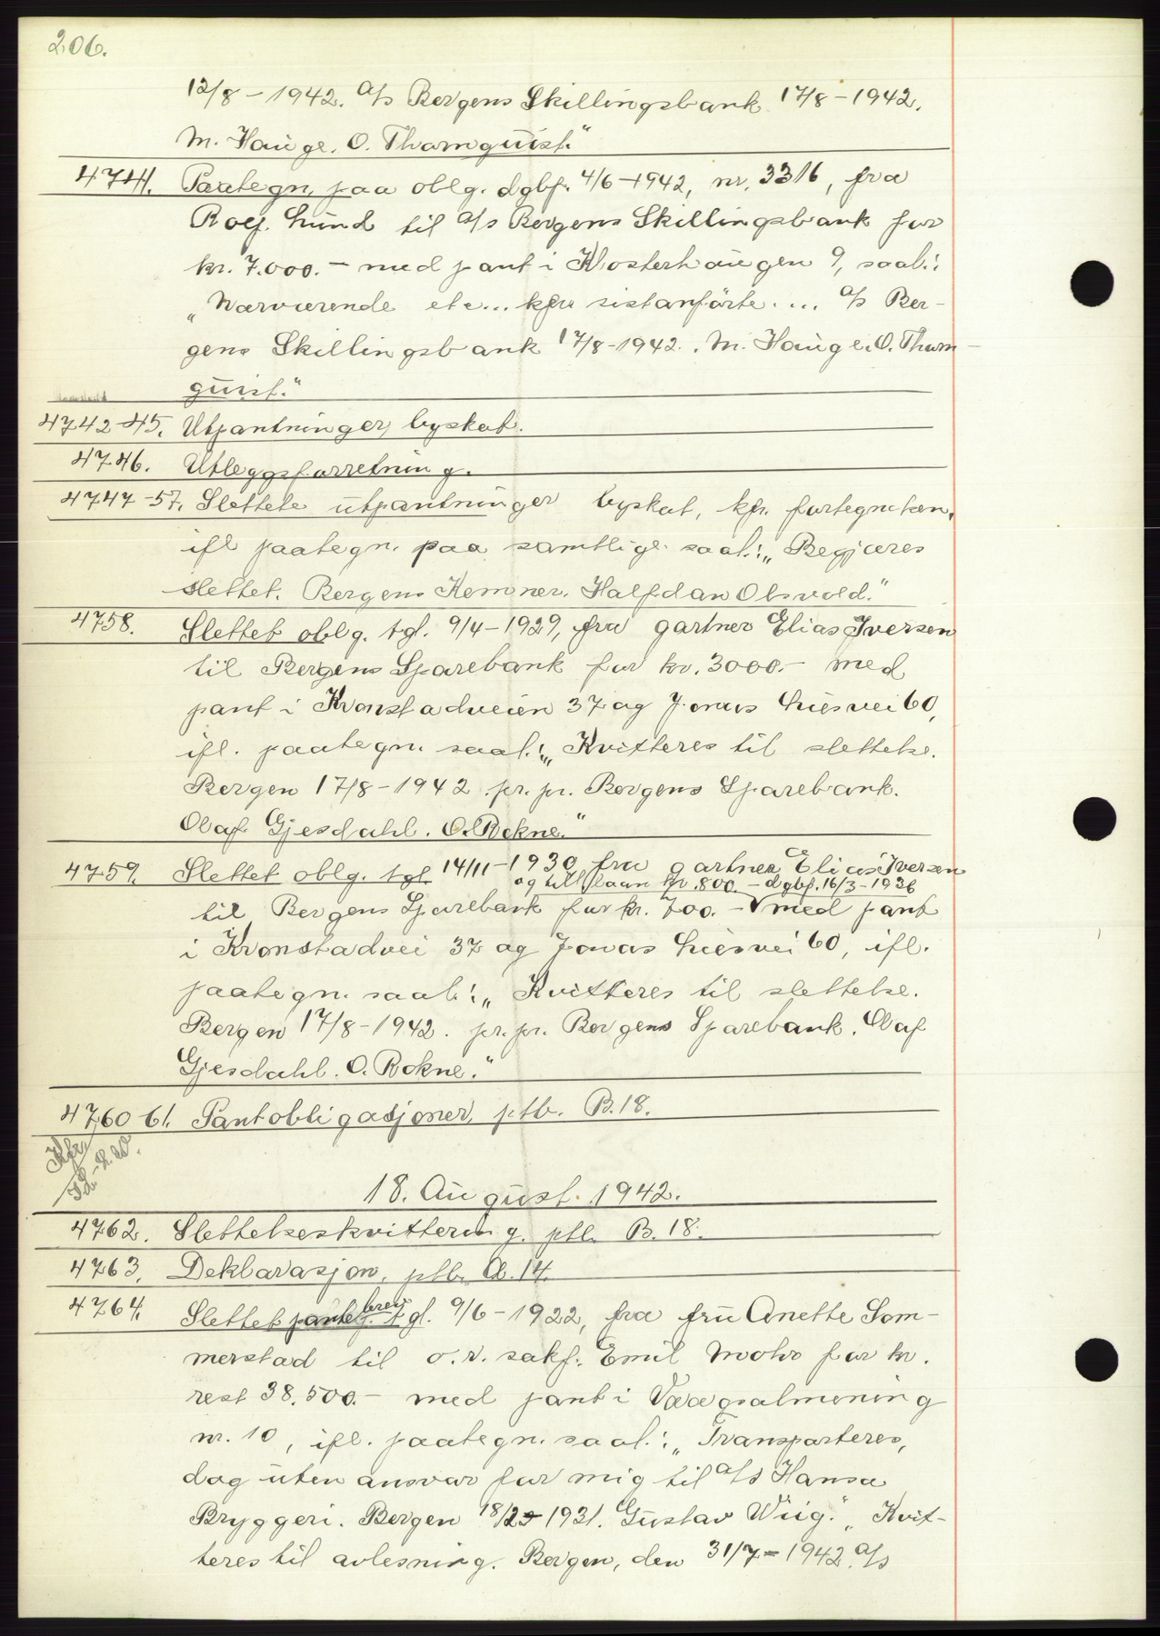 206.
12/8-1942. A/s Bergens Skillingsbank 17/8-1942.
M. Hauge. O. Thornquist."
4741. Paategn. paa oblg. dgbf. 4/6-1942, nr. 3316, fra
Rolf Lund til A/s Bergens Skillingsbank for
kr. 7.000.- med pant i Klosterhaugen 9, saal.:
"Nærværende etc... kfr sistanførte.... A/s Ber-
gens Skillingsbank 17/8-1942. M. Hauge. O. Thorn-
quist."
4742-45. Utpantninger, byskat.
4746. Utleggsforretning.
4747-57. Slettete utpantninger byskat, kfr. fortegnelsen,
ifl paategn. paa samtlige saal.: "Begjæres
slettet. Bergens Kemner. Halfdan Olsvold."
4758. Slettet oblg. tgl. 9/4-1929, fra gartner Elias Iversen
til Bergens Sparebank for kr. 3000.- med
pant i Kronstadveien 37 og Jonas Liesvei 60,
ifl. paategn. saal.: "Kvitteres til slettelse.
Bergen 17/8-1942 pr. pr. Bergens Sparebank.
Olaf Gjesdahl. O. Rokne."
4759. Slettet oblg. tgl 14/11-1930 fra gartner Elias Iversen
og till.laan kr. 800.- dgbf. 16/3-1936
til Bergens Sparebank for kr. 700.- V med pant
i Kronstadvei 37 og Jonas Liesvei 60, ifl.
paategn. saal.: "Kvitteres til slettelse.
Bergen 17/8-1942. pr. pr. Bergens Sparebank. Olaf
Gjesdahl. O. Rokne."
4760-61. Pantobligasjoner, ptb. B.18.
Kfr.
18. August 1942.
4762. Slettelseskvittering, ptb. B.18.
4763. Deklarasjon, ptb. Cb.14.
4764. Slettet pantebrev tgl. 9/6-1922, fra fru Anette Som-
merstad til o.r. sakf. Emil Mohr for kr.
rest 38.500.- med pant i Vaagsalmening
nr. 10, ifl. paategn. saal.: "Transporteres,
dog uten ansvar for mig til A/s Hansa
Bryggeri. Bergen 18/2-1931. Gustav Wiig." "Kvit-
teres til avlesning. Bergen, den 31/7-1942. A/s